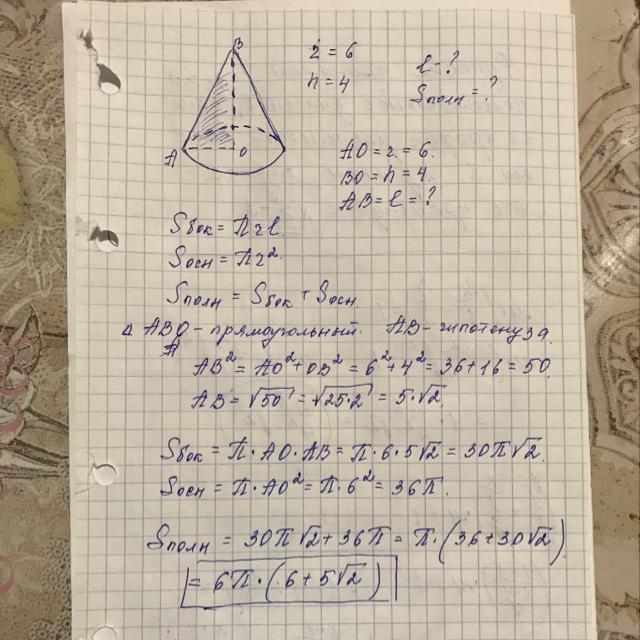 B
r = 6
h = 4
l - ?
Sполн = ?
A
O
AO = r = 6.
BO = h = 4.
AB = l = ?
Sбок = πrl
Sосн = πr²
Sполн = Sбок + Sосн
△ ABO - прямоугольный. AB - гипотенуза.
AB² = AO² + OB² = 6² + 4² = 36 + 16 = 50
AB = √50 = √25·2 = 5·√2.
Sбок = π · AO · AB = π · 6 · 5√2 = 30π√2.
Sосн = π · AO² = π · 6² = 36π.
Sполн = 30π√2 + 36π = π · (36 + 30√2)
= 6π · (6 + 5√2)